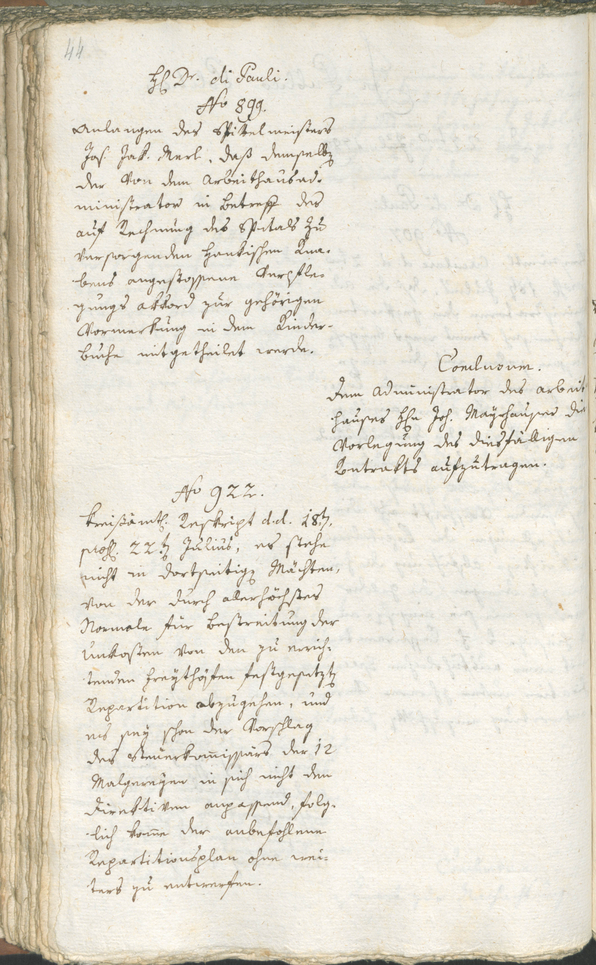 44
H. Dr. di Pauli.
No 899.
Anlangen des Spitelmeisters
Jos. Jak. Merl, daß demselb
der von dem Arbeithausad-
ministrator in betreff des
auf Rechnung des Spitals zu
versorgenden Hankischen Kna-
bens angestossene Verpfle-
gungs akkord zur gehörigen
Vormerkung in dem Kinder-
buche mitgetheilet werde.
Conclusum.
Dem Administrator des arbeit
hauses Hn Joh. Mayrhauser die
Vorlegung des diesfälligen
Kontrakts aufzutragen.
No 922.
Kreisämtl. Reskript d.d. 18t,
22t Julius, es stehe
nicht in dortseitig Mächten,
von der durch allerhöchstes
Normale für bestreitung der
Unkosten von den zu errich-
tenden Freythöfen festgesetzt
Repartition abzugehen, und
es sey schon der Vorschlag
des Steuerkommissärs der 12
Malgereyen in sich nicht den
Direktiven anpassend, folg-
lich komme der anbefohlene
Repartitionsplan ohne wei-
ters zu entwerfen.